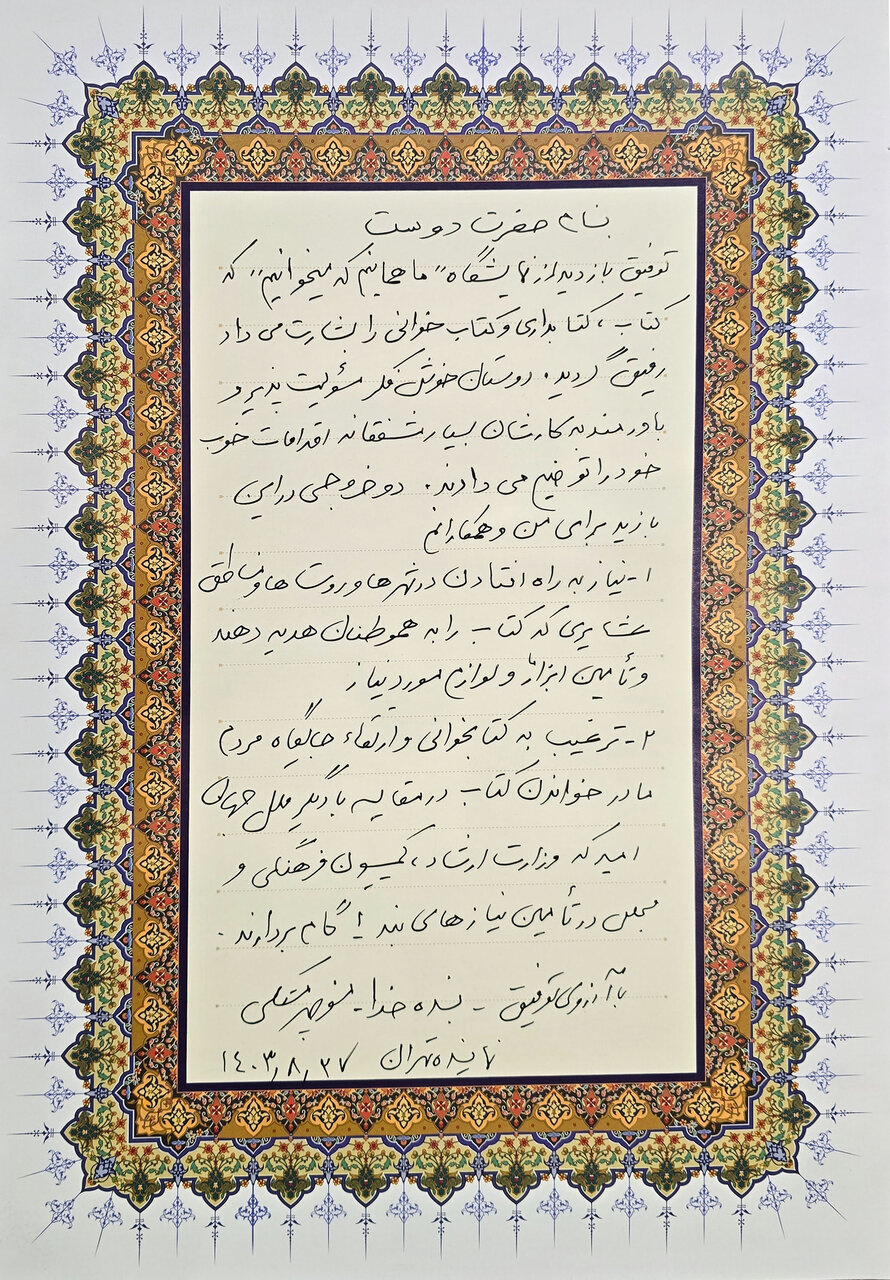 بنام حضرت دوست
توفیق بازدید از نمایشگاه "ما همانیم که میخوانیم" که
کتاب، کتابداری و کتاب خوانی را بشارت می داد
رفیق گردید. دوستان خوش فکر مسئولیت پذیر و
باورمند به کارشان بسیار مشفقانه اقدامات خوب
خود را توضیح می دادند. دو خروجی در این
بازدید برای من و همکارانم
۱- نیاز به راه افتادن در شهرها و روستاها و مناطق
عشایری که کتاب را به هموطنان هدیه دهند
و تأمین ابزار و لوازم مورد نیاز
۲- ترغیب به کتابخوانی و ارتقاء جایگاه مردم
ما در خواندن کتاب در مقایسه با دیگر ملل جهان
امید که وزارت ارشاد، کمیسیون فرهنگی و
مجلس در تأمین نیازهای بند ۱ گام بردارند.
با آرزوی توفیق - بنده خدا - منوچهر متکی
نماینده تهران ۱۴۰۳٫۸٫۲۷